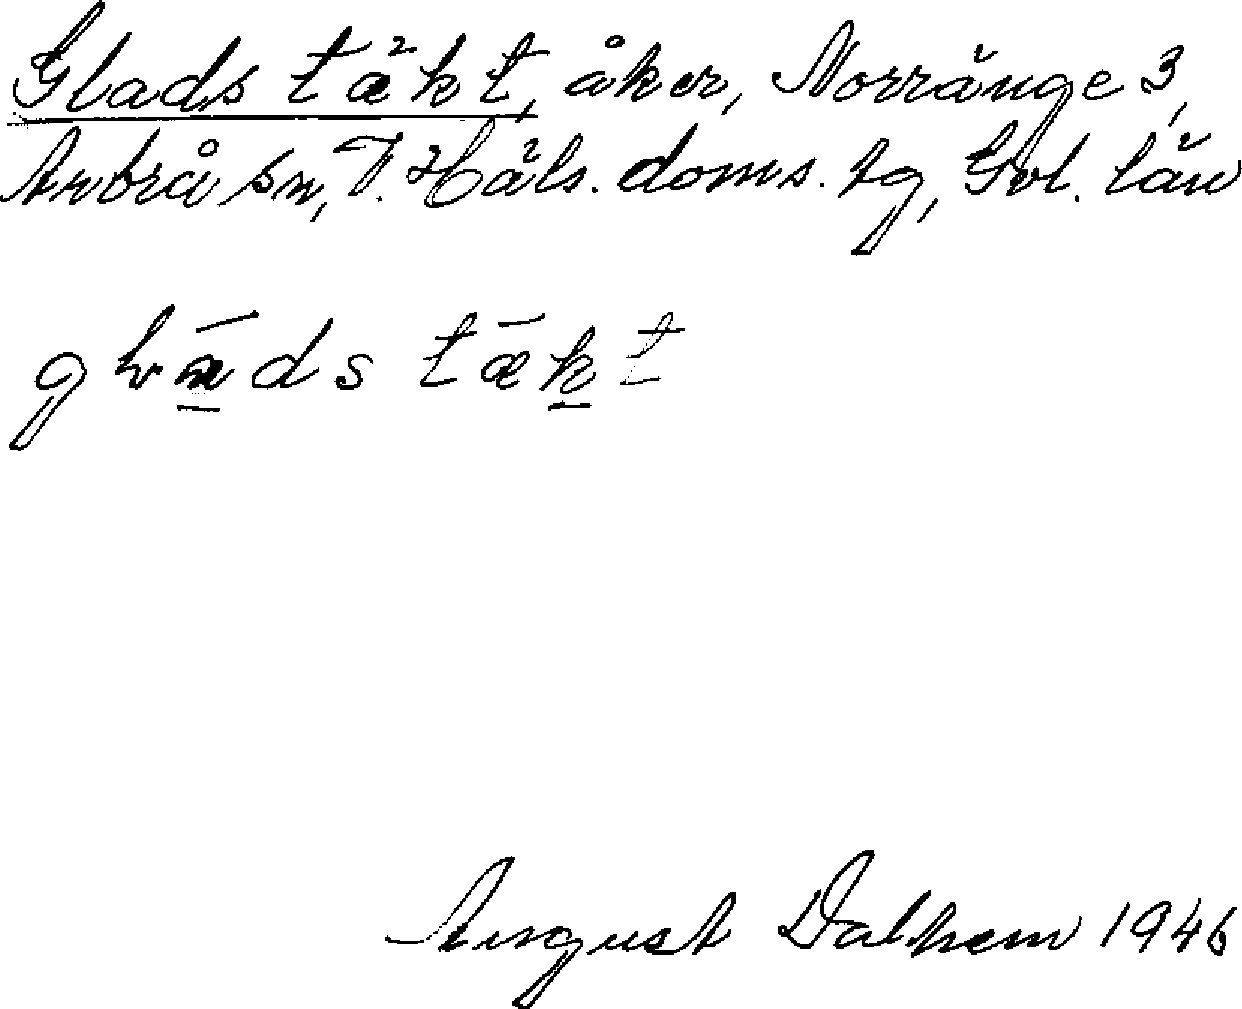 Glads täkt, åker, Norränge 3,
Arbrå sn, V. Häls. doms. tg, Gvl. län
glads täkt
August Dalhem 1946